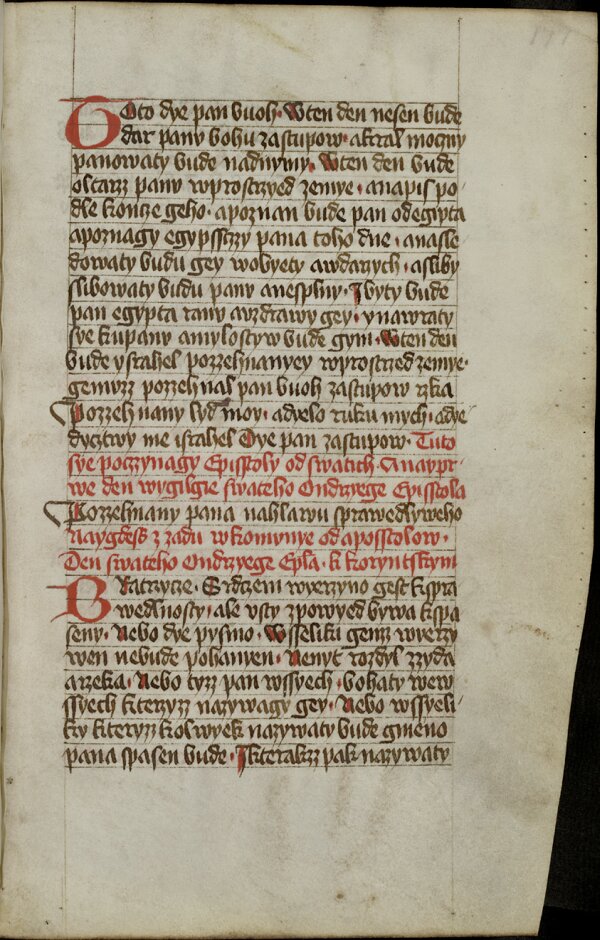 Toto dye pan buoh· Wten den nesen bude
dar panu bohu zastupow· akral moczny
panowaty bude nadnymy· Wten den bude
oltarz panu wprostrzyed zemye· anapis po-
dle koncze geho· apoznan bude pan odegipta
apoznagy egypssczy pana toho dne· anasle-
dowaty budu gey wobyety awdarzych· asliby
slibowaty budu panu anesplny· Ibyty bude
pan egypta ranu auzdrawy gey· ynawraty
sye kupanu amylostyw bude gym· Wten den
bude ysrahel pozzehnanyey wprostrzed zemye·
gemuzz pozzehnal pan buoh zastupow rzka
Pozzehnany lyd moy· adyelo ruku mych· adye-
dycztwy me israhel Dye pan zastupow· Tuto
sye poczynagy Episstoly od swatich· Anaypr-
we den wygilgie swateho Ondrzyege Episstola
Pozzehnany pana nahlawu sprawedlyweho
naygdess z zadu wkomunye od aposstolow·
Den swateho Ondrzyege Epla· k koryntskym
Bratrzycze· Srdczem wyerzyno gest kspra-
wedlnosty· ale usty zpowyed bywa kspa-
seny· Nebo dye pysmo· Wsseliki genz wyerzy
wen nebude pohanyen· Nenyt rozdyl zzyda
arzeka· Nebo tyzz pan wssyech· bohaty wew-
ssyech kterzyzz nazywagy gey· Nebo wssyeli-
ky kteryzz kolwyek nazywaty bude gmeno
pana spasen bude· Ikterakzz pak nazywaty